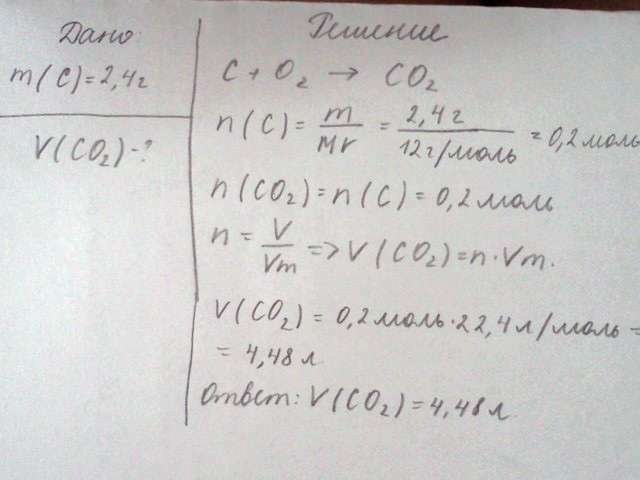 Дано:
m(C)=2,4г
V(CO₂)-?
Решение
C + O₂ → CO₂
n(C) = m/Mr = 2,4г/12г/моль = 0,2 моль
n(CO₂) = n(C) = 0,2 моль
n = V/Vm => V(CO₂) = n·Vm.
V(CO₂) = 0,2 моль·22,4 л/моль =
= 4,48 л
Ответ: V(CO₂) = 4,48 л